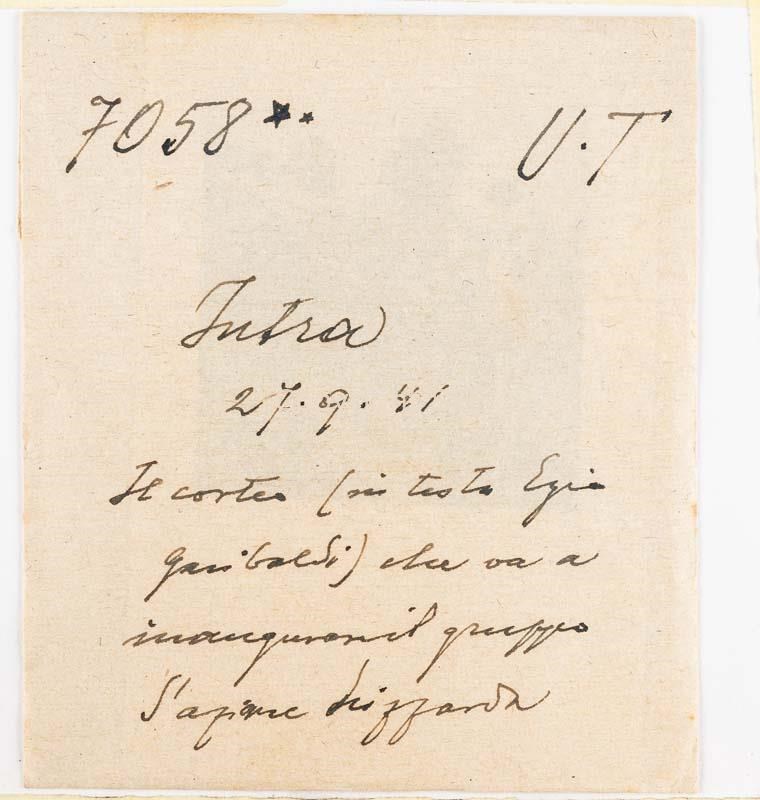 7058** U.T
Intra
27.9.41
Il corteo (in testa Ezio
Garibaldi) che va a
inaugurare il gruppo
d'azione